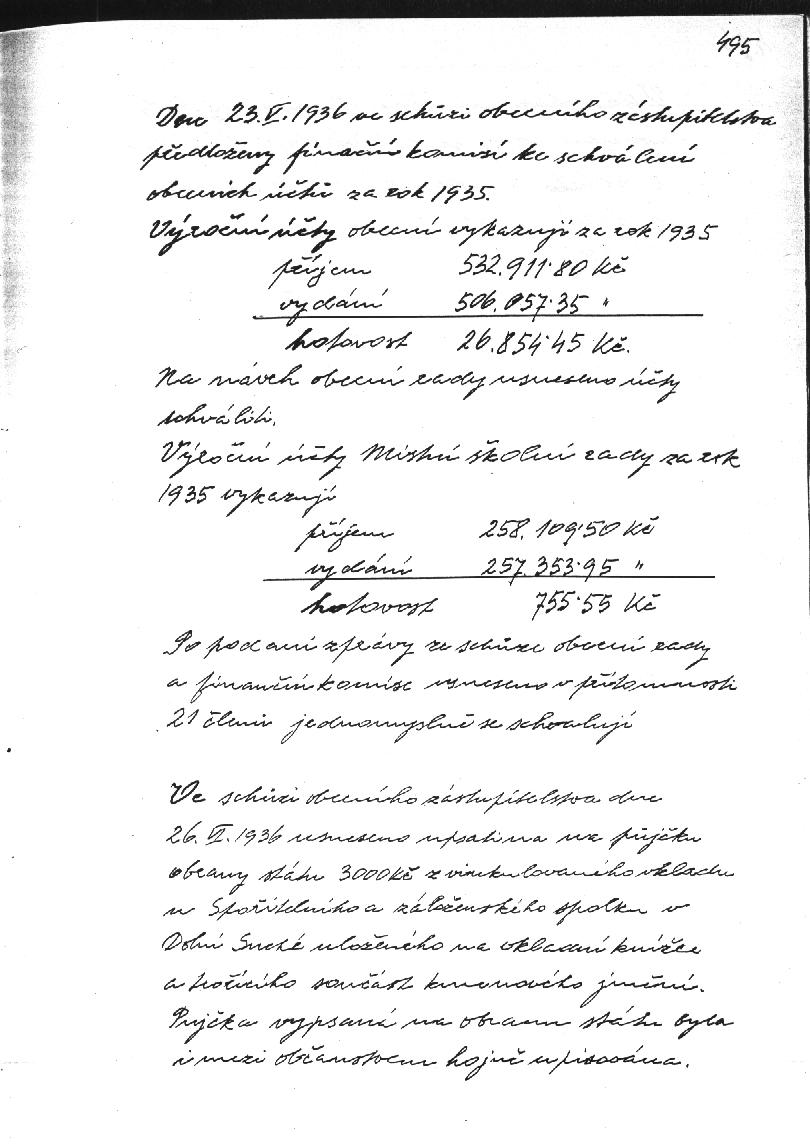 495
Dne 23.V.1936 ve schůzi obecního zástupitelstva
předloženy finanční komisí ke schválení
obecních účtů za rok 1935.
Výroční účty obecní vykazují za rok 1935
příjem 532.911·80 Kč
vydání 506.057·35 "
hotovost 26.854·45 Kč.
Na návrh obecní rady usneseno účty
schváliti.
Výroční účty Místní školní rady za rok
1935 vykazují
příjem 258.109·50 Kč
vydání 257.353·95 "
hotovost 755·55 Kč
Po podaní zprávy ze schůze obecní rady
a finanční komise usneseno v přítomnosti
21 členů jednomyslně se schvalují
Ve schůzi obecního zástupitelstva dne
26.VI.1936 usneseno upsati na půjčku
obrany státu 3000 Kč z vinkulovaného vkladu
u Spořitelního a záloženského spolku v
Dolní Suché uloženého na vkladní knížce
a tvořícího součást kmenového jmění.
Pujčka vypsaná na obranu státu byla
i mezi občanstvem hojně upisována.